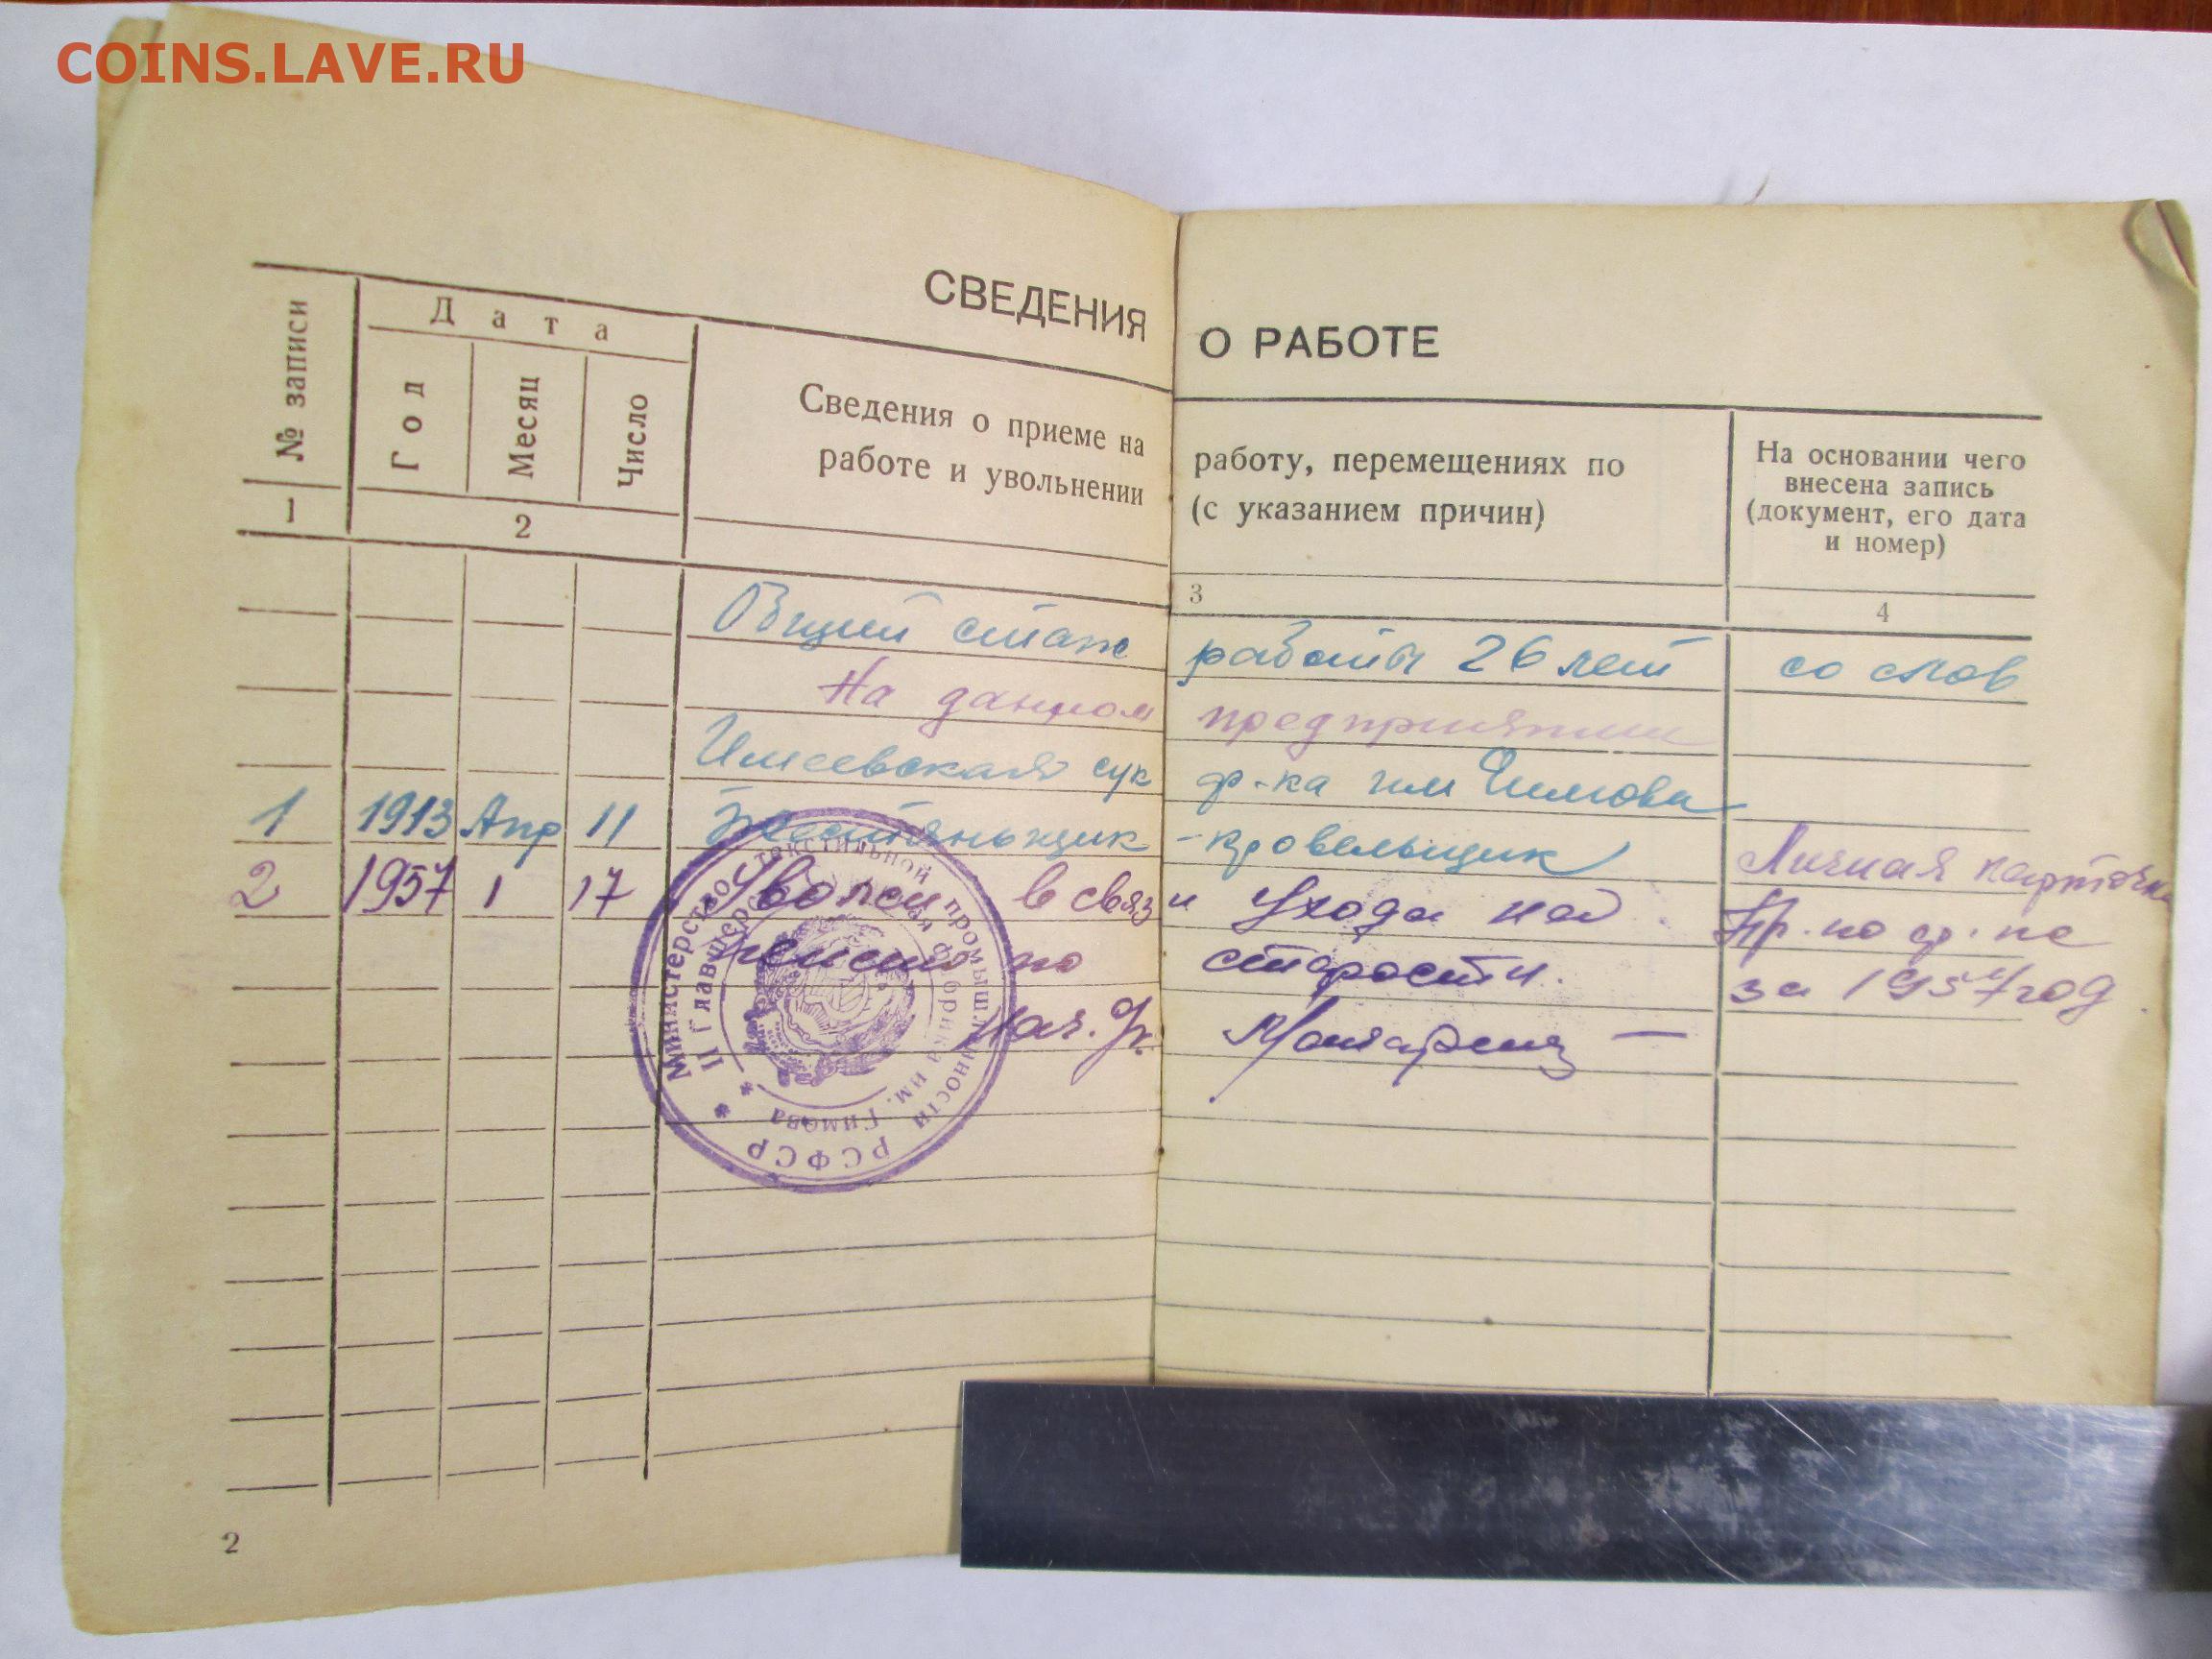 COINS.LAVE.RU
СВЕДЕНИЯ О РАБОТЕ
№ записи
Дата
Год
Месяц
Число
Сведения о приеме на работу, перемещениях по
работе и увольнении (с указанием причин)
На основании чего
внесена запись
(документ, его дата
и номер)
1 2 3 4
Общий стаж работы 26 лет со слов
На данном предприятии
сук ф-ка им Гимова
1 1913 Апр 11 Жестяньщик-кровельщик Личная карточка
2 1957 1 17 Уволен в связи ухода на Пр. по ф-ке
пенсию по старости. за 1957 год
Нач.
Министерство текстильной промышленности РСФСР
II Главшерсть фабрика им. Гимова
2